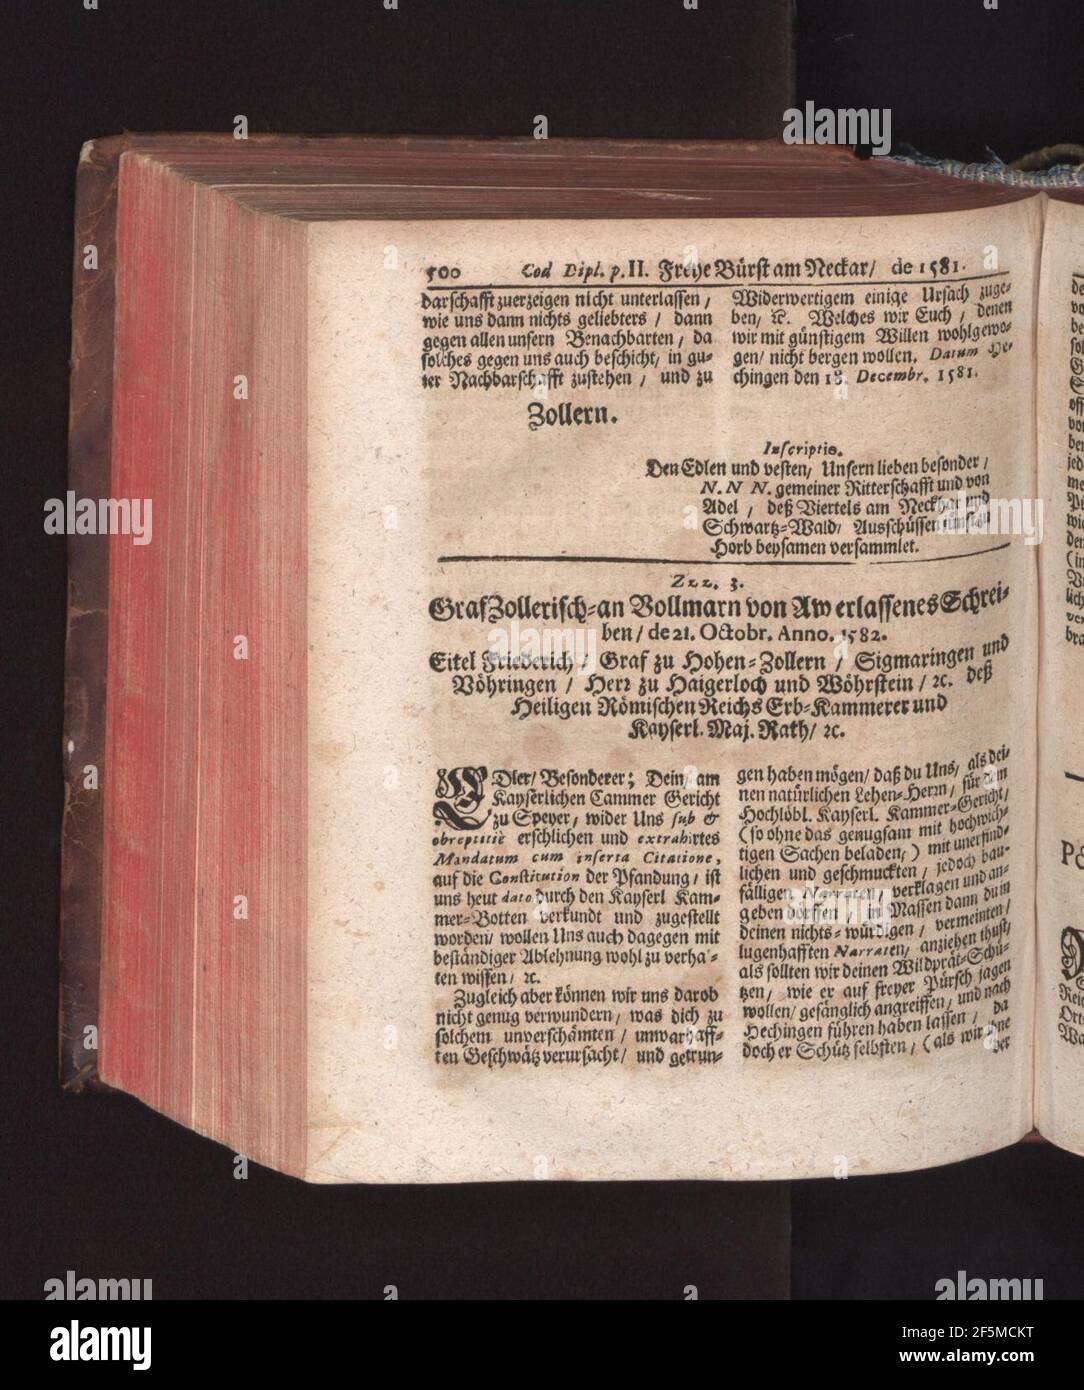 500 Cod Dipl. p. II. Freye Bürst am Neckar/ de 1581.
darschafft zuerzeigen nicht unterlassen /
wie uns dann nichts geliebters / dann
gegen allen unsern Benachbarten / da
solches gegen uns auch beschicht / in gu-
ter Nachbarschafft zustehen / und zu
Widerwertigem einige Ursach zuge-
ben / ꝛc. Welches wir Euch / denen
wir mit günstigem Willen wohlgewo-
gen / nicht bergen wollen. Datum He-
chingen den 18. Decembr. 1581.
Zollern.
Inscriptio.
Den Edlen und vesten / Unsern lieben besonder /
N. N N. gemeiner Ritterschafft und von
Adel / deß Viertels am Neckhar und
Schwartz-Wald / Ausschüssen
Horb beysamen versammlet.
Zzz. 3.
Graf Zollerisch-an Vollmarn von Aw erlassenes Schrei-
ben / de 21. Octobr. Anno. 1582.
Eitel Friederich / Graf zu Hohen-Zollern / Sigmaringen und
Vöhringen / Herr zu Haigerloch und Wöhrstein / ꝛc. deß
Heiligen Römischen Reichs Erb-Kammerer und
Kayserl. Maj. Rath / ꝛc.
EDler / Besonderer; Dein / am
Kayserlichen Cammer Gericht
zu Speyer / wider Uns sub &
obreptitiè erschlichen und extrahirtes
Mandatum cum inserta Citatione,
auf die Constitution der Pfandung / ist
uns heut dato durch den Kayserl Kam-
mer-Botten verkundt und zugestellt
worden / wollen Uns auch dagegen mit
beständiger Ablehnung wohl zu verha-
ten wissen / ꝛc.
Zugleich aber können wir uns darob
nicht genug verwundern / was dich zu
solchem unverschämten / unwarhaff-
ten Geschwätz verursacht / und getrun-
gen haben mögen / daß du Uns / als dei-
nen natürlichen Lehen-Herrn / für dem
Hochlöbl. Kayserl. Kammer-Gericht /
(so ohne das genugsam mit hochwich-
tigen Sachen beladen /) mit unerfind-
lichen und geschmuckten / jedoch bau-
fälligen Narraten / verklagen und an-
geben dörffen / in Massen dann du in
deinen nichts-würdigen / vermeinten /
lugenhafften Narraten / anziehen thust /
als sollten wir deinen Wildprät-Schü-
tzen / wie er auf freyer Pürsch jagen
wollen / gefänglich angreiffen / und nach
Hechingen führen haben lassen / da
doch er Schütz selbsten / (als wir ihne
her
alamy
Image ID: 2F5MCKT
www.alamy.com